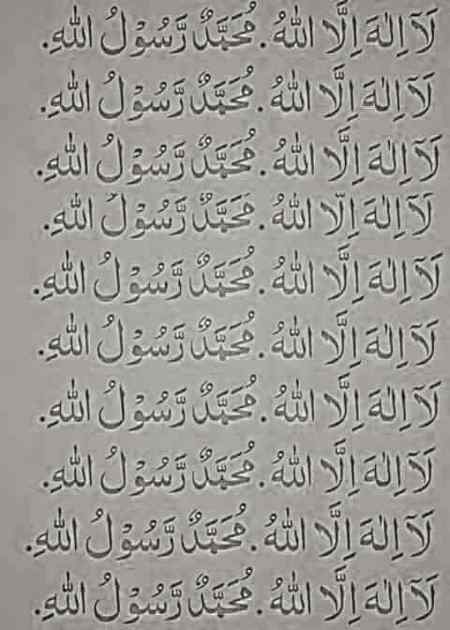 لَآ اِلٰهَ اِلَّا اللهُ. مُحَمَّدٌ رَّسُوْلُ اللهِ.
لَآ اِلٰهَ اِلَّا اللهُ. مُحَمَّدٌ رَّسُوْلُ اللهِ.
لَآ اِلٰهَ اِلَّا اللهُ. مُحَمَّدٌ رَّسُوْلُ اللهِ.
لَآ اِلٰهَ اِلَّا اللهُ. مُحَمَّدٌ رَّسُوْلُ اللهِ.
لَآ اِلٰهَ اِلَّا اللهُ. مُحَمَّدٌ رَّسُوْلُ اللهِ.
لَآ اِلٰهَ اِلَّا اللهُ. مُحَمَّدٌ رَّسُوْلُ اللهِ.
لَآ اِلٰهَ اِلَّا اللهُ. مُحَمَّدٌ رَّسُوْلُ اللهِ.
لَآ اِلٰهَ اِلَّا اللهُ. مُحَمَّدٌ رَّسُوْلُ اللهِ.
لَآ اِلٰهَ اِلَّا اللهُ. مُحَمَّدٌ رَّسُوْلُ اللهِ.
لَآ اِلٰهَ اِلَّا اللهُ. مُحَمَّدٌ رَّسُوْلُ اللهِ.